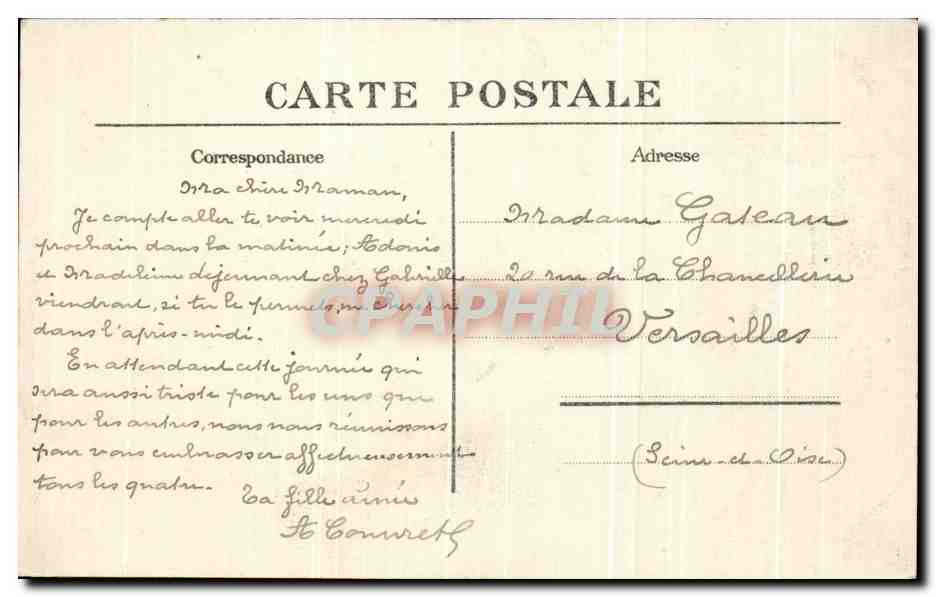 CARTE POSTALE
Correspondance
Ma chère Maman,
Je compte aller te voir mercredi
prochain dans la matinée; Adonis
et Madeleine déjeunant chez Gabrielle
viendront, si tu le permets, me chercher
dans l'après-midi.
En attendant cette journée qui
sera aussi triste pour les uns que
pour les autres, nous nous réunissons
pour vous embrasser affectueusement
tous les quatre.
Ta fille aînée
Adresse
Madame Gateau
20 rue de la Chancellerie
Versailles
(Seine-et-Oise)
CPAPHIL